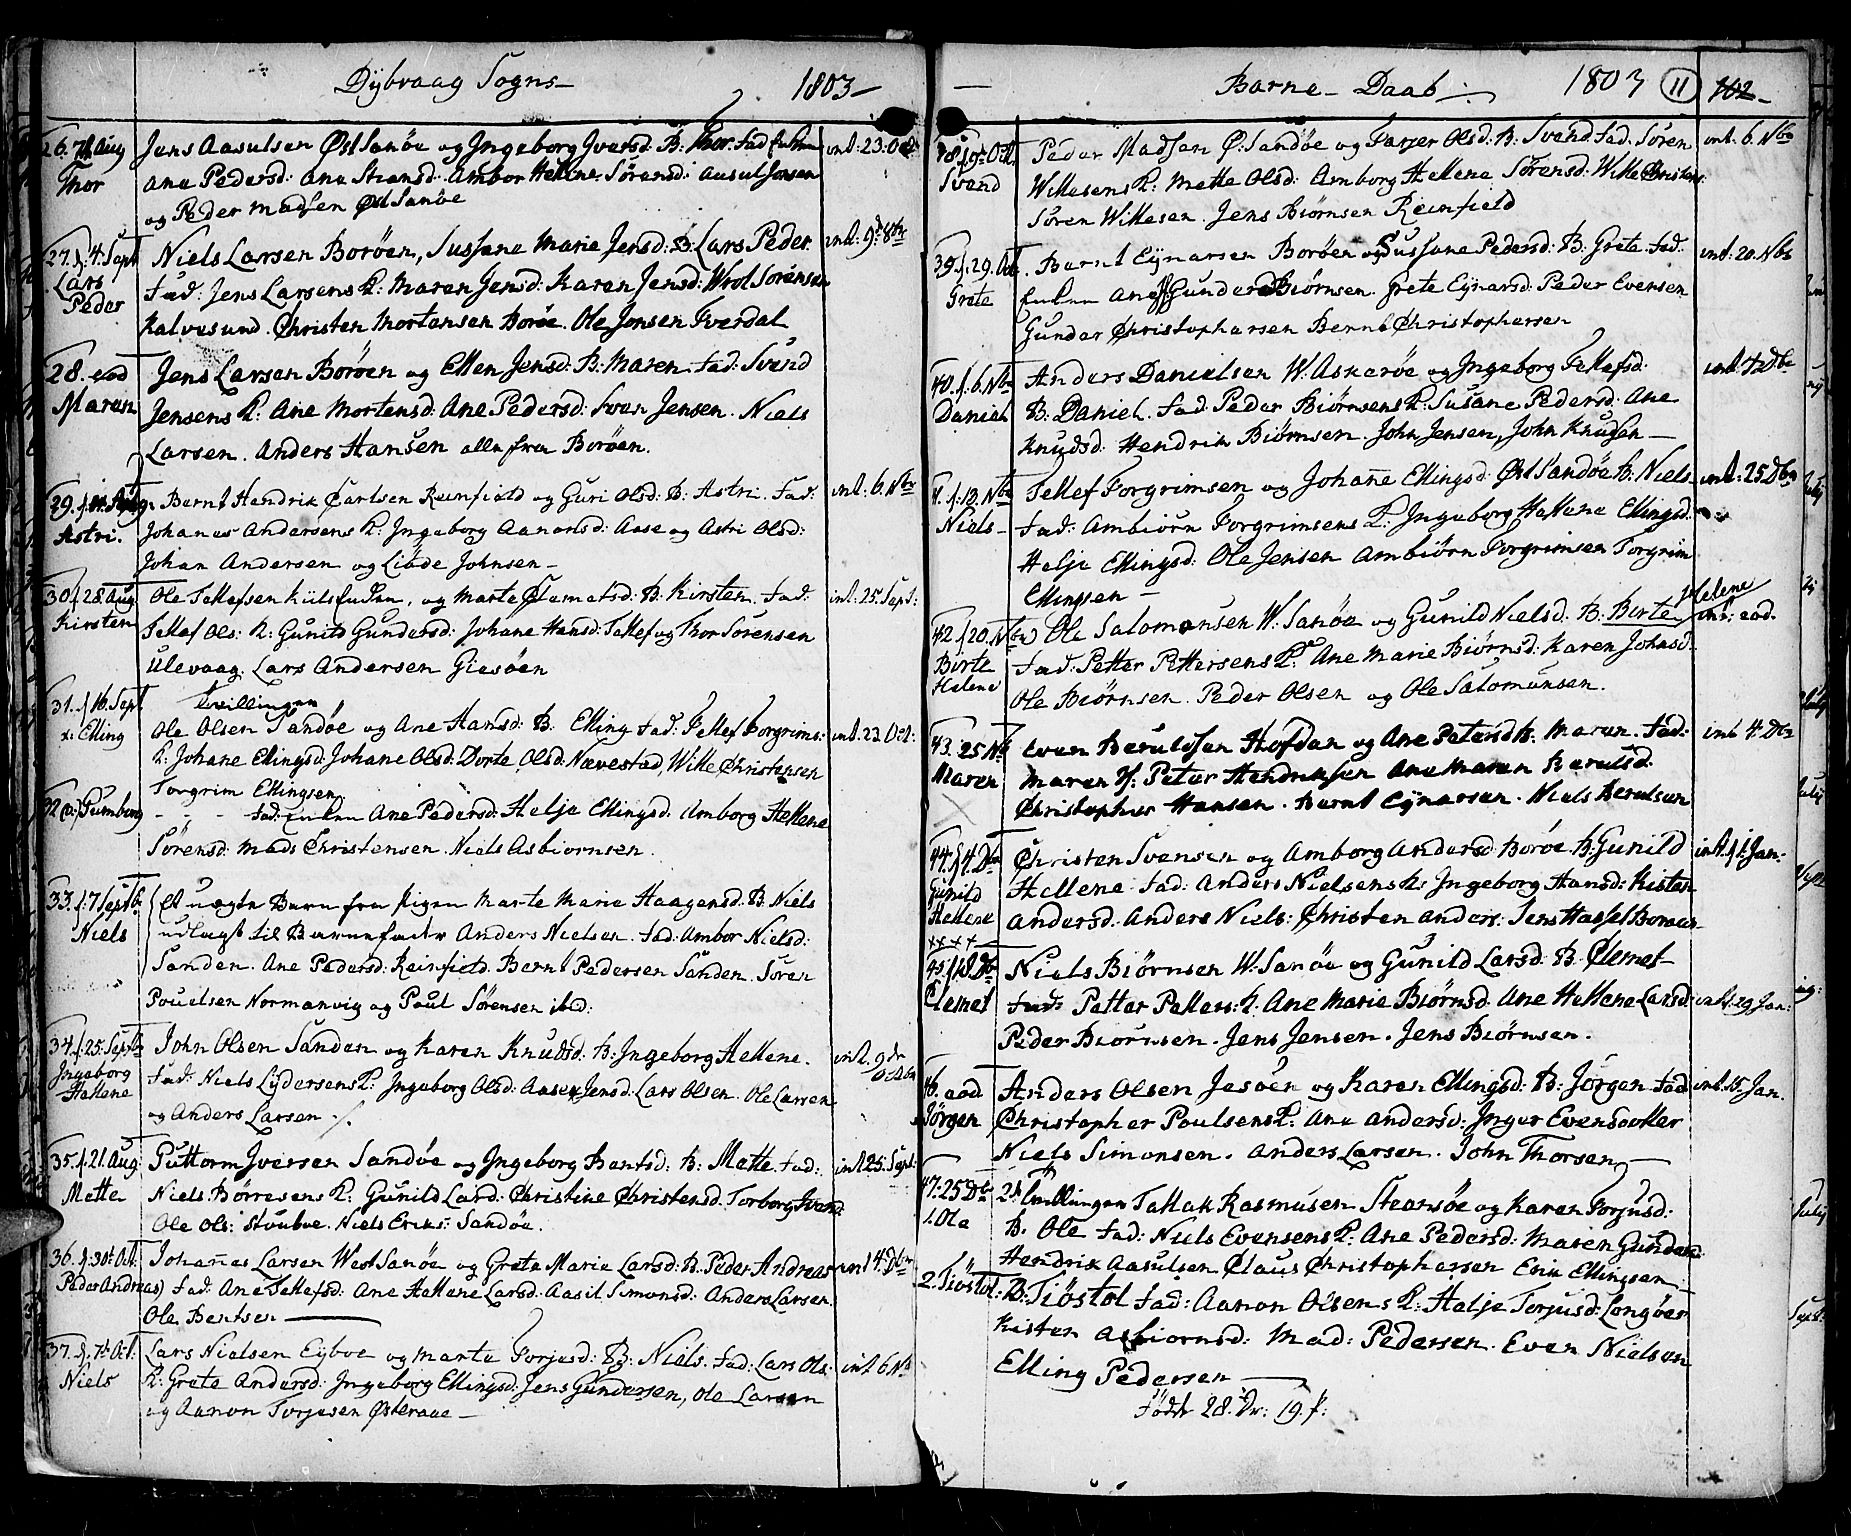 Dybvaag Sogns 1803
26. 7de Aug Jens Aasulsen ØstSanøe og Ingeborg Iversd: B: Thor. Fad:
Thor Ane Pedersd: Ane Steansd: Ambor Hellene Sørensd: Aasul Jonsen int: 23. Oct
og Peder Madsen Øst Sanøe
27. f. 4. Sept Niels Larsen Borøen, Sussane Marie Jensd: B: Lars Peder int: 9de 8br
Lars Peder Fad: Jens Larsens K: Maren Jensd: Karen Jensd: Wrol Sørensen
Kalvesund. Christen Mortensen Borøe. Ole Jonsen Fverdal
28. eod Jens Larsen Borøen og Ellen Jensd: B: Maren. Fad: Svend
Maren Jensens K: Ane Mortensd: Ane Pedersd: Sven Jensen. Niels
Larsen. Anders Hansen alle fra Borøen.
29. f. Bernt Hendrik Carlsen Reinfield og Guri Olsd: B: Astri. Fad: int: 6. Nbr
Astri. Johanes Andersens K: Ingeborg Aanonsd: Aase og Astri Olsd:
Johan Andersen og Liøde Johnsen
30. f. 28. Aug Ole Tellefsen og Marte Clematsd: B: Kirsten. Fad: int: 25. Sept:
Kirsten Tellef Ols: K: Gunild Gundersd: Johane Hansd: Tellef og Thor Sørensen
Ulevaag. Lars Andersen Giesøen
31. f. 16. Sept Tvillinger
1: Elling Ole Olsen Sandøe og Ane Hansd: B: Elling Fad: Tellef Torgrims: int: 23. Oct:
K: Johane Ellingsd: Johane Olsd: Dorte Olsd: Nævestad, Wille Christensen
Torgrim Ellingsen
32 - - - Fad: Ane Pedersd: Helje Ellingsd: Amborg Hellene
Sørensd: Mads Christensen. Niels Asbiornsen.
33. f. 7 Septb: Et uægte Barn fra Pigen Marte Marie Haagensd: B: Niels
Niels udlagt til Barnefader Anders Nielsen. Fad: Ambor Nielsd:
Sanden. Ane Pedersd: Reinfield. Bernt Pedersen Sanden. Søren
Pouelsen Normanvig og Poul Sørensen ibid:
34. f. 25. Septb: John Olsen Sanden og Karen Knudsd: B: Ingeborg Hellene. int. 9de
Ingeborg Hellene Fad: Niels Lydersens K: Ingeborg Olsd: Aasen Jensd: Lars Olsen. Ole Larsen
og Anders Larsen
35. f. 21 Aug: Guttorm Iversen Sandøe og Ingeborg Bentsd: B: Mette Fad: int 25. Sept:
Mette Niels Børresens K: Gunild Lard: Christine Christensd: Torborg
Ole Ols: Stoubue. Niels Eriks: Sandøe.
36. f. 30t Oct. Johanes Larsen WestSanøe og Grete Marie Larsd: B: Peder Andreas int 4. Dbr
Peder Andreas Fad: Ane Tellefsd: Ane Hellene Larsd: Aasil Simonsd: Anders Larsen.
Ole Bentsen
37. f. 7t Oct: Lars Nielsen Eybue og Marte Torjusd: B: Niels. Fad: Lars Ols: int 6 Nbr
Niels K: Grete Andersd: Ingeborg Ellingsd: Jens Gundersen, Ole Larsen
og Aanon Torjesen
Barne-Daab 1803 11 102
38. f. 9t Oct. Peder Madsen Ø: Sandøe og Olsd: B: Svend Fad. Søren int. 6. Nbr
Svend Willesens K: Mette Olsd: Amborg Hellene Sørensd: Wille Christens:
Søren Willesen. Jens Biørnsen Reinfield
39. f. 29. Oct Bernt Eynarsen Borøen og Sussane Pedersd: B: Grete Fad: int. 20. Nbr
Grete Gunder Biørnsen. Grete Eynarsd: Peder Evensen
Gunder Christophersen Bernt Christophersen
40. f. 6. Nbr Anders Danielsen W: Askerøe og Ingeborg Tellefsd: int.
Daniel B: Daniel. Fad: Peder Biørnsens K: Susane Pedersd: Ane
Knudsd: Hendrik Biørnsen. John Jensen, John Knudsen
41. f. 13. Nbr Tellef Torgrimsen og Johane Ellingsd: Øst Sandøe B: Niels int: 25. Dbr
Niels Fad: Ambiørn Torgrimsens K: Ingeborg Hellene Ellingsd:
Helje Ellingsd: Ole Jensen Ambiørn Torgrimsen Torgrim
Ellingsen Helene
42. f. 20. Nbr Ole Salomonsen W: Sanøe og Gunild Nielsd. B: Berte int: eod.
Birte Helene Fad: Petter Pettersens K: Ane Marie Biørnsd: Karen Johnsd:
Ole Biørnsen. Peder Olsen og Ole Salomonsen.
43. 25 Nb Even Berulfsen Hofdan og Ane Petersd B: Maren. Fad: int 4. Dbr
Maren Maren H. Peter Hendriksen Ane Maren Berulsd.
Christopher Hansen. Bernt Eynarsen. Niels Berulsen
44. f. 4. Dbr Christen Svensen og Amborg Andersd Borøe. B: Gunild int. f 1. Jan:
Gunild Hellene Hellene Fad: Anders Nielsens K: Ingeborg Hansd: Kisten
Andersd: Anders Niels: Christen Anders: Jens
45. f. 18. Dbr Niels Biørnsen W. Sanøe og Gunild Larsd: B: Clemet
Clemet Fad: Petter Petters: K: Ane Marie Biørnsd: Ane Hellene Larsd: int. 29. Jan:
Peder Biørnsen. Jens Jensen. Jens Biørnsen.
46. eod Anders Olsen Jesøen og Karen Ellingsd: B: Jørgen Fad int. 15. Jan.
Jørgen Christopher Poulsens K: Ane Andersd: Inger Evensdotter
Niels Simonsen. Anders Larsen. John Thorsen
47: 25 Dbr 2de Tvillinger Tallak Rasmusen Steansøe og Karen Torjusd:
1. Ole B: Ole Fad: Niels Evensens K: Ane Pedersd: Maren Gundersd:
Hendrik Aasulsen Claus Christophersen Erik Ellingsen
2. Tiøstol: B: Tiøstol Fad: Aanon Olsens K: Helje Torjusd: Longøer
Kisten Asbiornsd: Mad: Pedersen. Even Nielsen
Elling Pedersen
Fødde 28. Dr: 19. f: